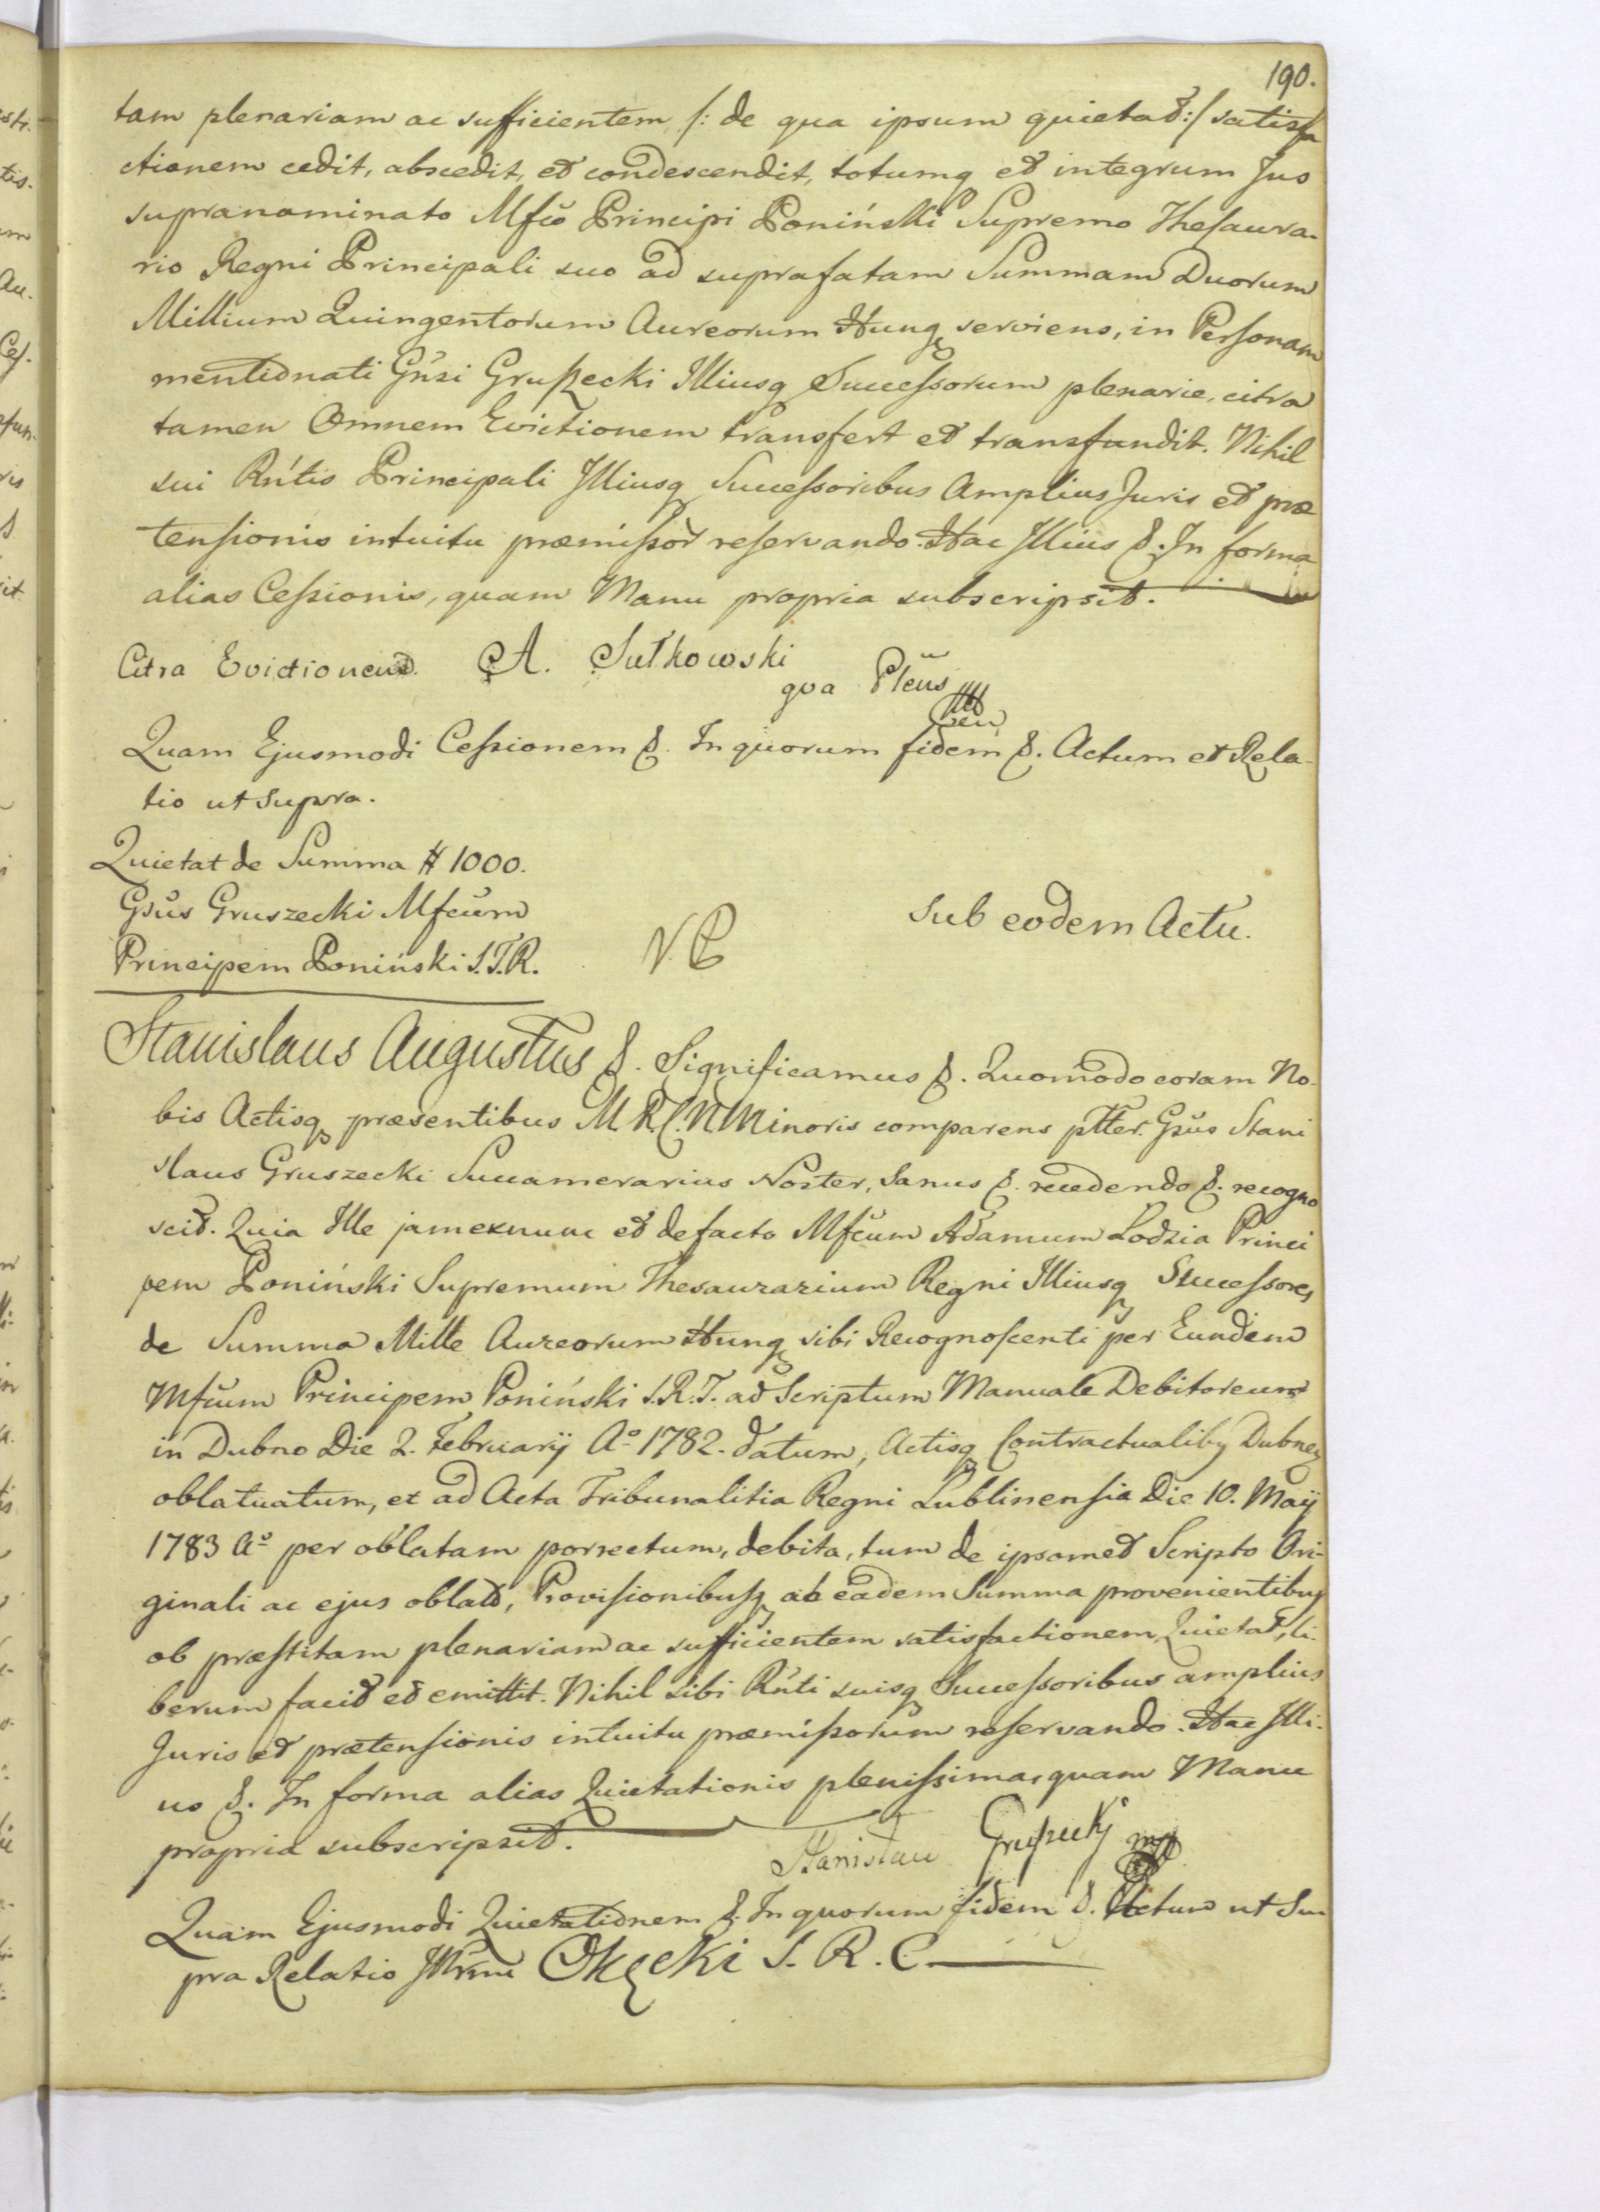 190.
tam plenariam ac sufficientem /: de qua ipsum quietat :/ satisfa
ctionem cedit, abscedit, et condescendit, totumq et integrum Jus
supranominato Mfco Principi Poniński Supremo Thesaura-
rio Regni Principali suo ad suprafatam Summam Duorum
Millium Quingentorum Aureorum Hung serviens, in Personam
mentionati Gnsi Grußecki Illiusq Successorum plenarie, citra
tamen Omnem Evictionem transfert et transfundit. Nihil
sui Rntis Principali Illiusq Successoribus Amplius Juris et præ
tensionis intuitu præmissor reservando. Hac Illius &. In forma
alias Cessionis, quam Manu propria subscripsit.
Citra Evictionem. A. Sułkowski
qua Plens
Quam Ejusmodi Cessionem &. In quorum fidem &. Actum et Rela-
tio ut supra.
Quietat de Summa # 1000.
Gsus Gruszecki Mfcum
Principem Poniński S.T.R.
sub eodem Actu.
Stanislaus Augustus &. Significamus &. Quomodo coram No-
bis Actisq præsentibus M.R.C.N. Minoris comparens ptter. Gsus Stani
slaus Gruszecki Succamerarius Noster, Sanus &. recedendo &. recogno
scit. Quia Ille jam exnunc et defacto Mfcum Adamum Lodzia Princi
pem Poniński Supremum Thesaurarium Regni Illiusq Successores
de Summa Mille Aureorum Hung sibi Recognoscenti per Eundem
Mfcum Principem Poniński S.R.T. ad Scriptum Manuale Debitoreum
in Dubno Die 2. Februarij Ao 1782. datum, Actisq Contractualibq Dubneq
oblatuatum, et ad Acta Tribunalitia Regni Lublinensia Die 10. Maij
1783 Ao per oblatam porrectum, debita, tum de ipsomet Scripto Ori-
ginali ac ejus oblat, Provisionibusq ab eadem Summa provenientibus
ob præstitam plenariam ac sufficientem satisfactionem Quietat, li-
berum facit et emittit. Nihil sibi Rnti suisq Successoribus amplius
Juris et prætensionis intuitu præmissorum reservando. Hac Illi-
us &. In forma alias Quietationis plenissima, quam Manu
propria subscripsit. Stanisław Grußecki mp
Quam Ejusmodi Quietationem &. In quorum fidem &. Actum ut Su-
pra Relatio Okęcki S. R. C.